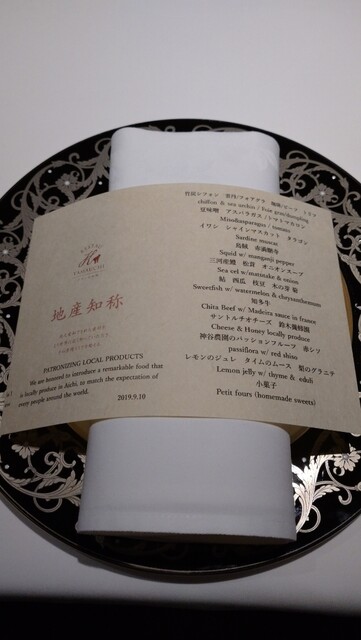 地産知称
PATRONIZING LOCAL PRODUCTS
We are honored to introduce a remarkable food that
is locally produce in Aichi, to match the expectation of
every people around the world.
2019.9.10
chiffon & sea urchin / foie gras/dumpling
夏味噌 アスパラガス/トマトマカロン
Misodasparagus / tomato
イワシ シャインマスカット タラゴン
Sardine muscat
烏賊 赤満願寺
Squid w/ manganji pepper
三河産鱧 松茸 オニオンスープ
Sea eel w/matsutake & onion
鮎 西瓜 枝豆 木の芽 菊
Sweetfish w/ watermelon & chrysanthemum
知多牛
Chita Beef w/ Madeira sauce in france
サントルチオチーズ 鈴木養蜂園
Cheese & Honey locally produce
神谷農園のパッションフルーツ 赤シソ
passiflora w/ red shiso
レモンのジュレ タイムのムース 梨のグラニテ
Lemon jelly w/ thyme &
小菓子
Petit fours (homemade sweets)